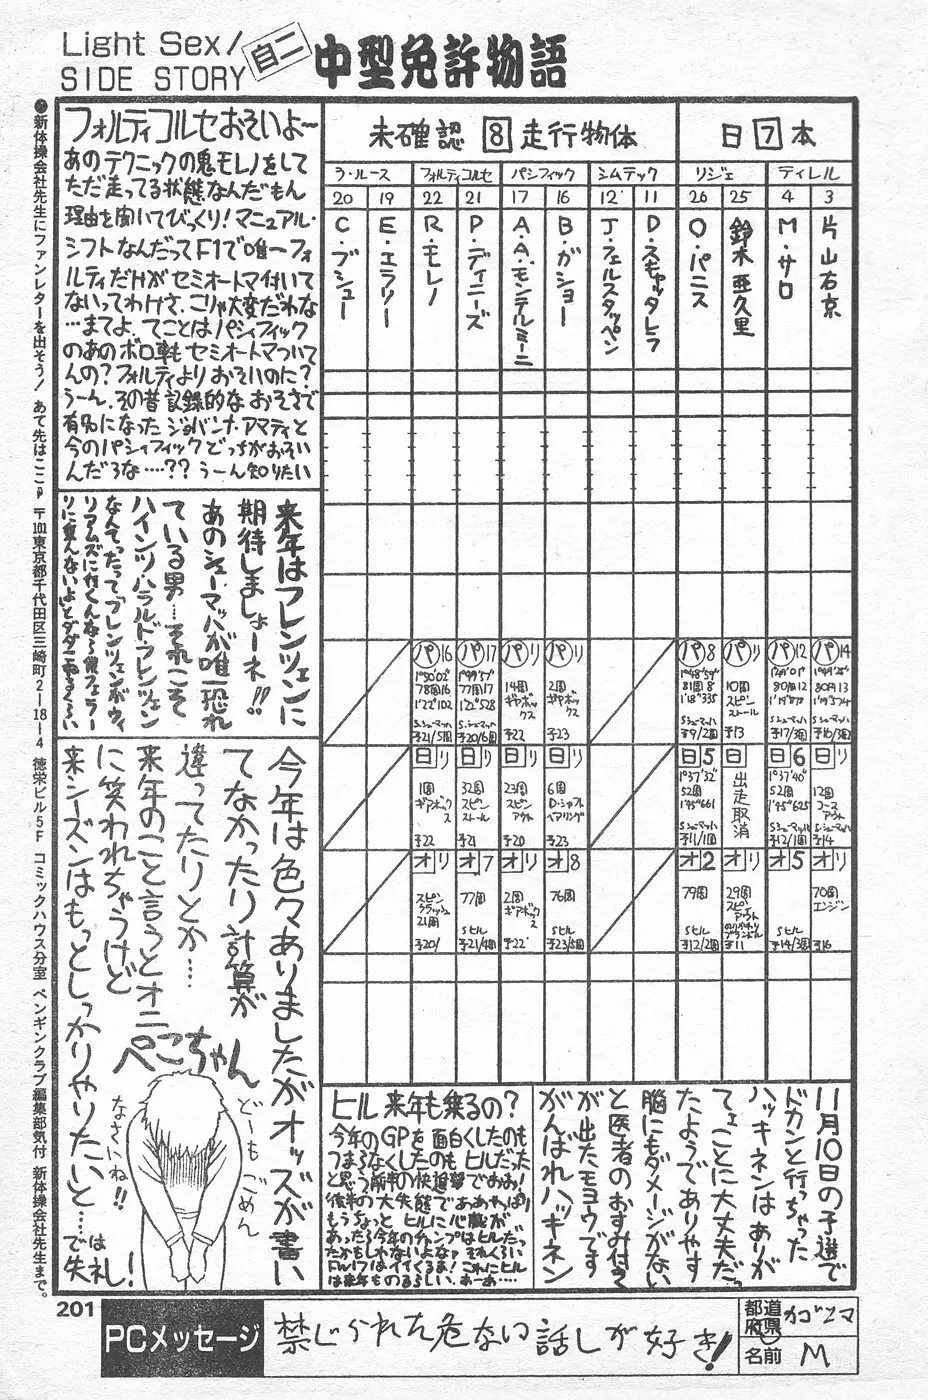 Light Sex/
SIDE STORY
自二
中型免許物語
●新体操会社先生にファンレターを出そう! あて先はここ 〒101東京都千代田区三崎町2-18-4 徳栄ビル5F コミックハウス分室 ペンギンクラブ編集部気付 新体操会社先生まで。
フォルティコルセおそいよ〜
あのテクニックの鬼モレノをして
ただ走ってる状態なんだもん
理由を聞いてびっくり!マニュアル・
シフトなんだってF1で唯一フォ
ルティだけがセミオートマ付いて
ないってわけさ、こりゃ大変だわな
…まてよ、てことはパシフィック
のあのボロ車もセミオートマついて
んの?フォルティよりおそいのに?
うーん、その昔記録的なおそさで
有名になったジョバンナ・アマティと
今のパシフィックどっちがおそい
んだろな……?? うーん知りたい
来年はフレンツェンに
期待しましょーネ!!
あのシューマッハが唯一恐れ
ている男…それこそ
ハインツ・ハラルド・フレンツェン
なんてったって「フレンツェンがウィ
リアムズに行くんなら僕フェラー
今年は色々ありましたがオッズが書い
てなかったり計算が
違ってたりとか……
来年のこと言うとオニ
に笑われちゃうけど
来シーズンはもっとしっかりやりたいと…では
失礼し!
ぺこちゃん
どーもごめん
なさいね!!
未確認 8 走行物体
日 7 本
ラ・ルース フォルティコルセ パシフィック シムテック リジェ ティレル
20 19 22 21 17 16 12 11 26 25 4 3
C・ブシュー
E・エラリー
R・モレノ
P・ディニーズ
A・A・モンテルミーニ
B・ガショー
J・フェルスタッペン
D・スキャッタレラ
O・パニス
鈴木亜久里
M・サロ
片山右京
パ16 パ17 パリ パリ パ8 パリ パ12 パ14
1°50'02" 78周16 1'22"102 S.シューマッハ 予21/5周
1°49'57" 77周17 1'22"528 S.シューマッハ 予20/6周
14周 ギヤボックス 予22
2周 ギヤボックス 予23
1°48'59" 81周8 1'18"335 Sシューマッハ 予9/2周
10周 スピン ストール 予13
80周12 予17/3周
80周13 予16/3周
日リ 日リ 日リ 日リ 日5 日 日6 日リ
1周 ギアボックス 予22
32周 スピン ストール 予21
23周 スピン アウト 予20
6周 D・シャフト ベアリング 予23
1°37'32" 52周 1'45"661 Sシューマッハ 予11/1周
出走取消
1°37'40" 52周 1'45"625 Sシューマッハ 予12/1周
12周 コース アウト S・シューマッハ 予14
オリ オ7 オリ オ8 オ2 オリ オ5 オリ
スピン クラッシュ 21周 予20/
77周 Sヒル 予21/4周
2周 ギアボックス 予22
76周 Sヒル 予23/5周
79周 Sヒル 予12/2周
29周 スピン アウト 予11
Sヒル 予14/3周
70周 エンジン 予16
ヒル 来年も乗るの?
今年のGPを面白くしたのも
つまらなくしたのも ヒルだった
と思う前半の快進撃でおお!
後半の大失態でああやっぱり
もうちょっと ヒルに心臓が
あったら今年のチャンプはヒルだっ
たかもしゃないよなァ それくらい
FW17はイイくるま! これにヒル
は来年ものるらしい、あーあ……
11月10日の予選で
ドカンと行っちゃった
ハッキネンはありが
てェことに大丈夫だっ
たようでありやす
脳にもダメージがない
と医者のおすみ付き
が出たモヨウです
がんばれハッキネン
201
PCメッセージ
禁じられた危ない話しが好き!
都道府県 カゴシマ
名前 M